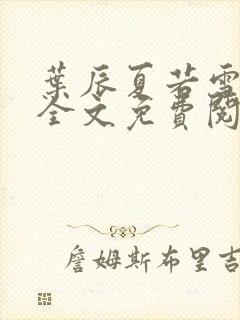 葉辰夏若雪
全文免費閱
詹姆斯布里吉